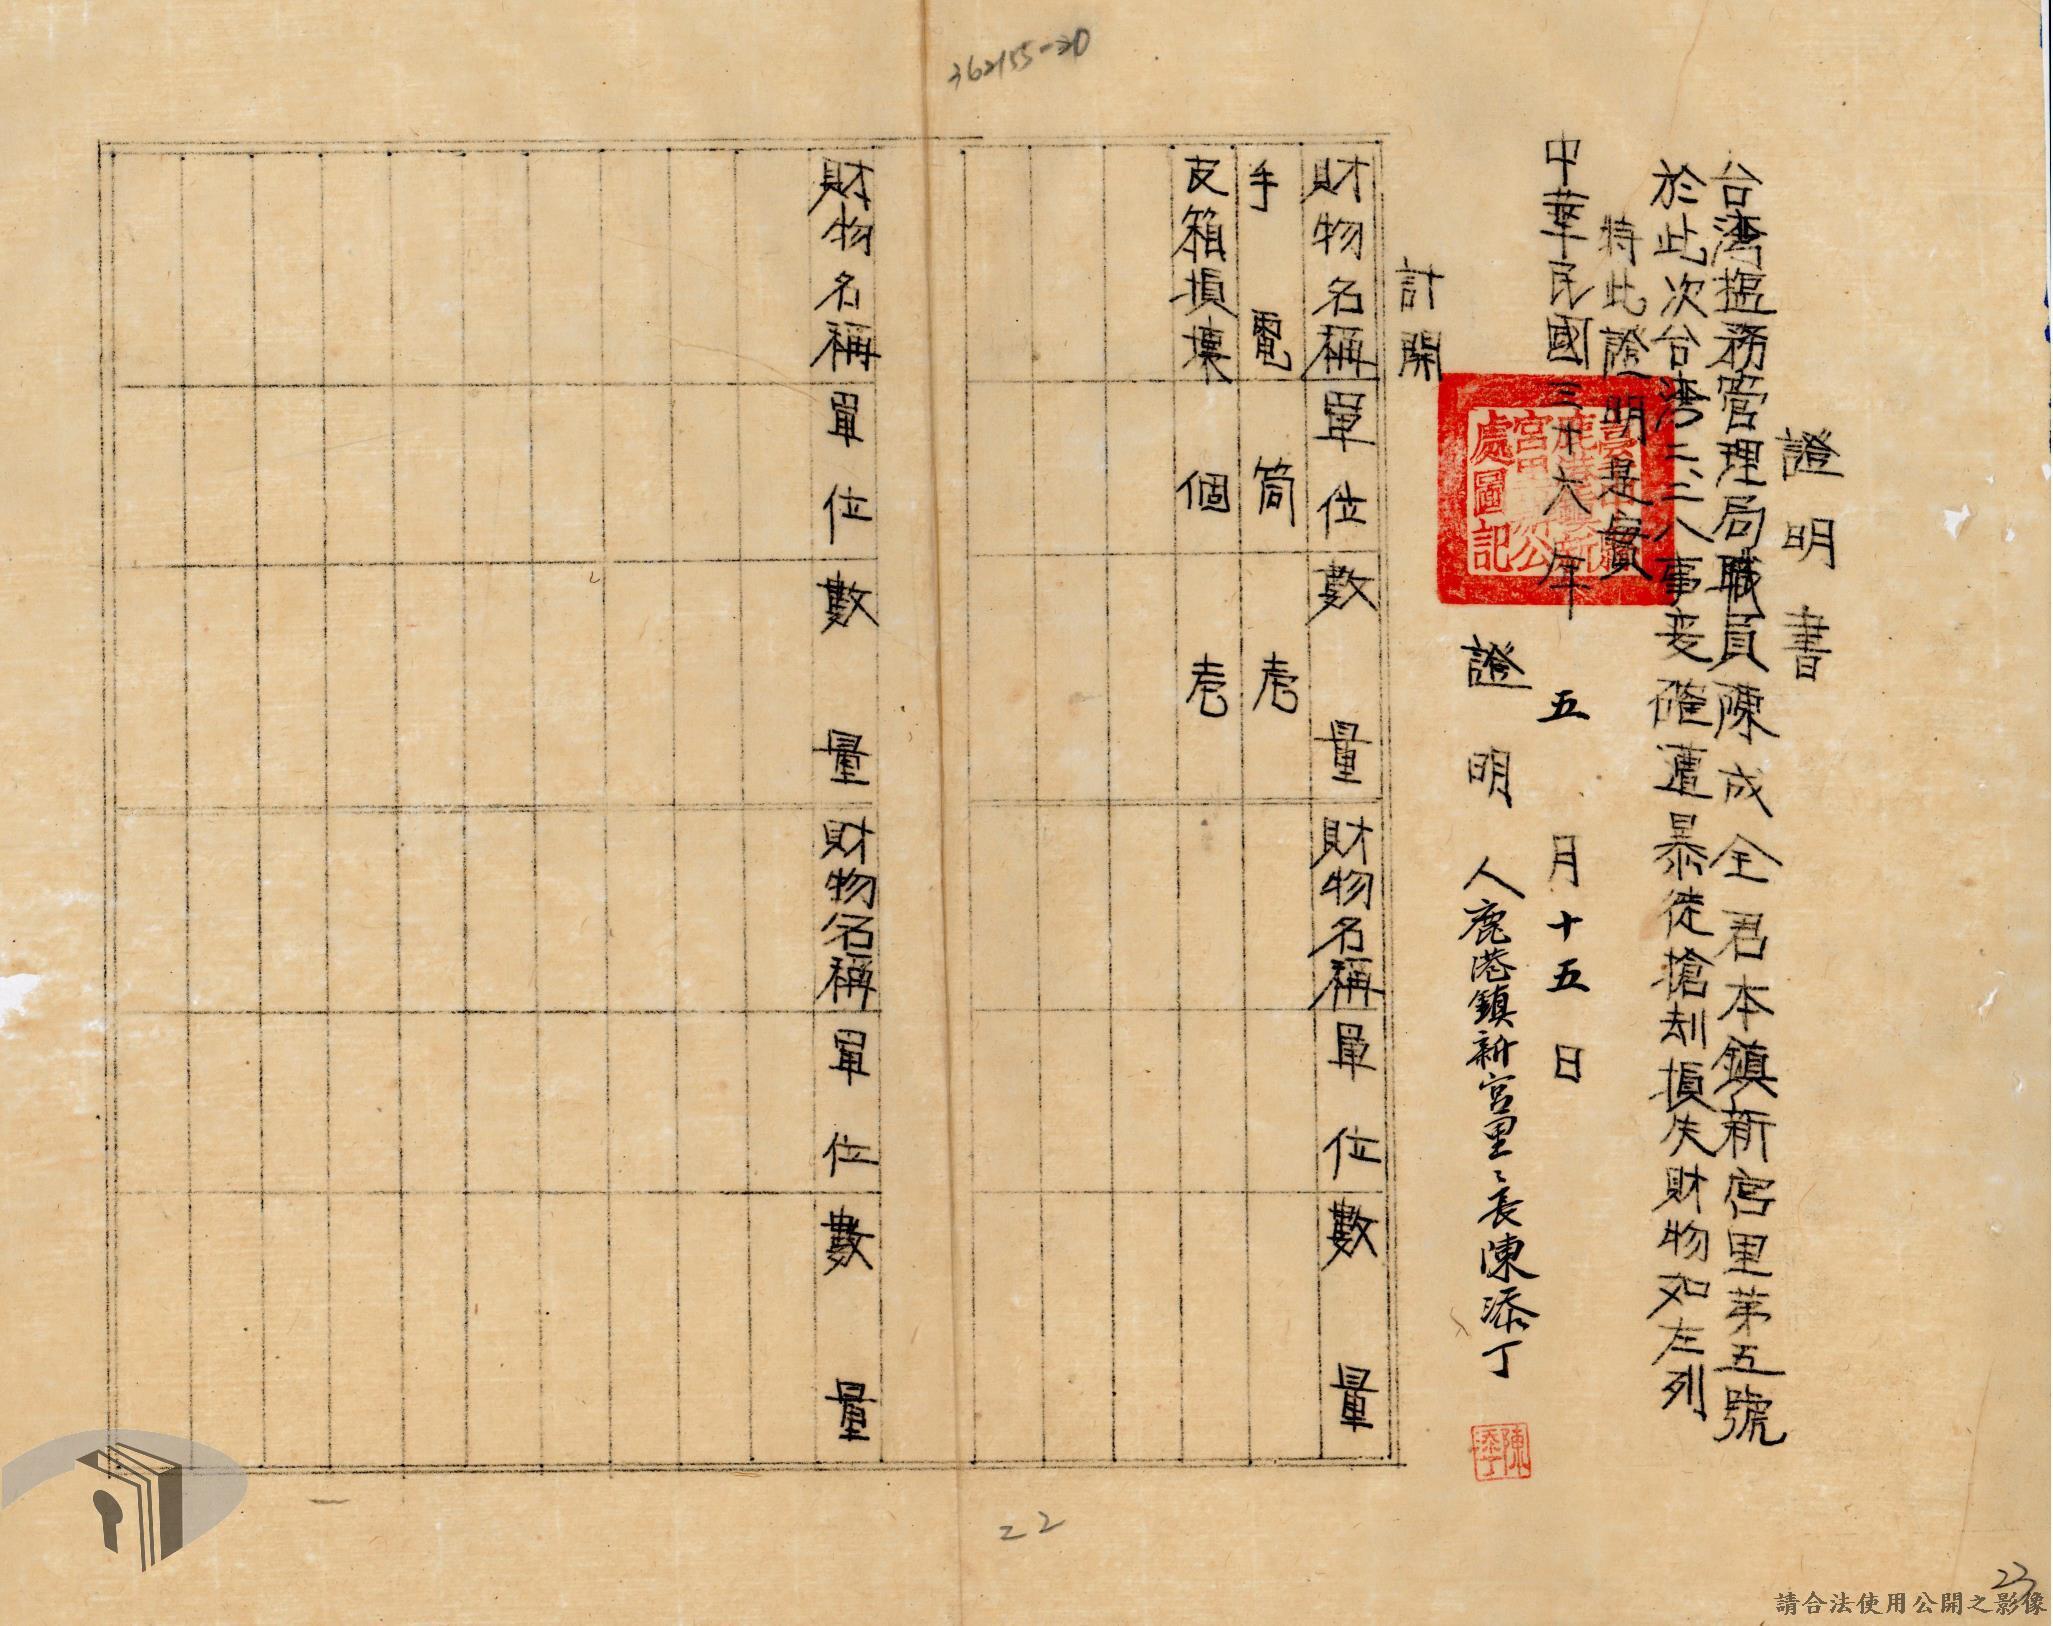 362155-20
證明書
台湾塩務管理局職員陳成全君本鎮新宮里第五號
於此次台湾二二八事変確遭暴徒搶刦損失財物如左列
特此證明是實
中華民國三十六年五月十五日
證明人鹿港鎮新宮里々長陳添丁
陳添丁
計開
財物名稱 單位 數量 財物名稱 單位 數量
手電 筒 壱
皮箱損壞 個 壱
財物名稱 單位 數量 財物名稱 單位 數量
22
23
請合法使用公開之影像